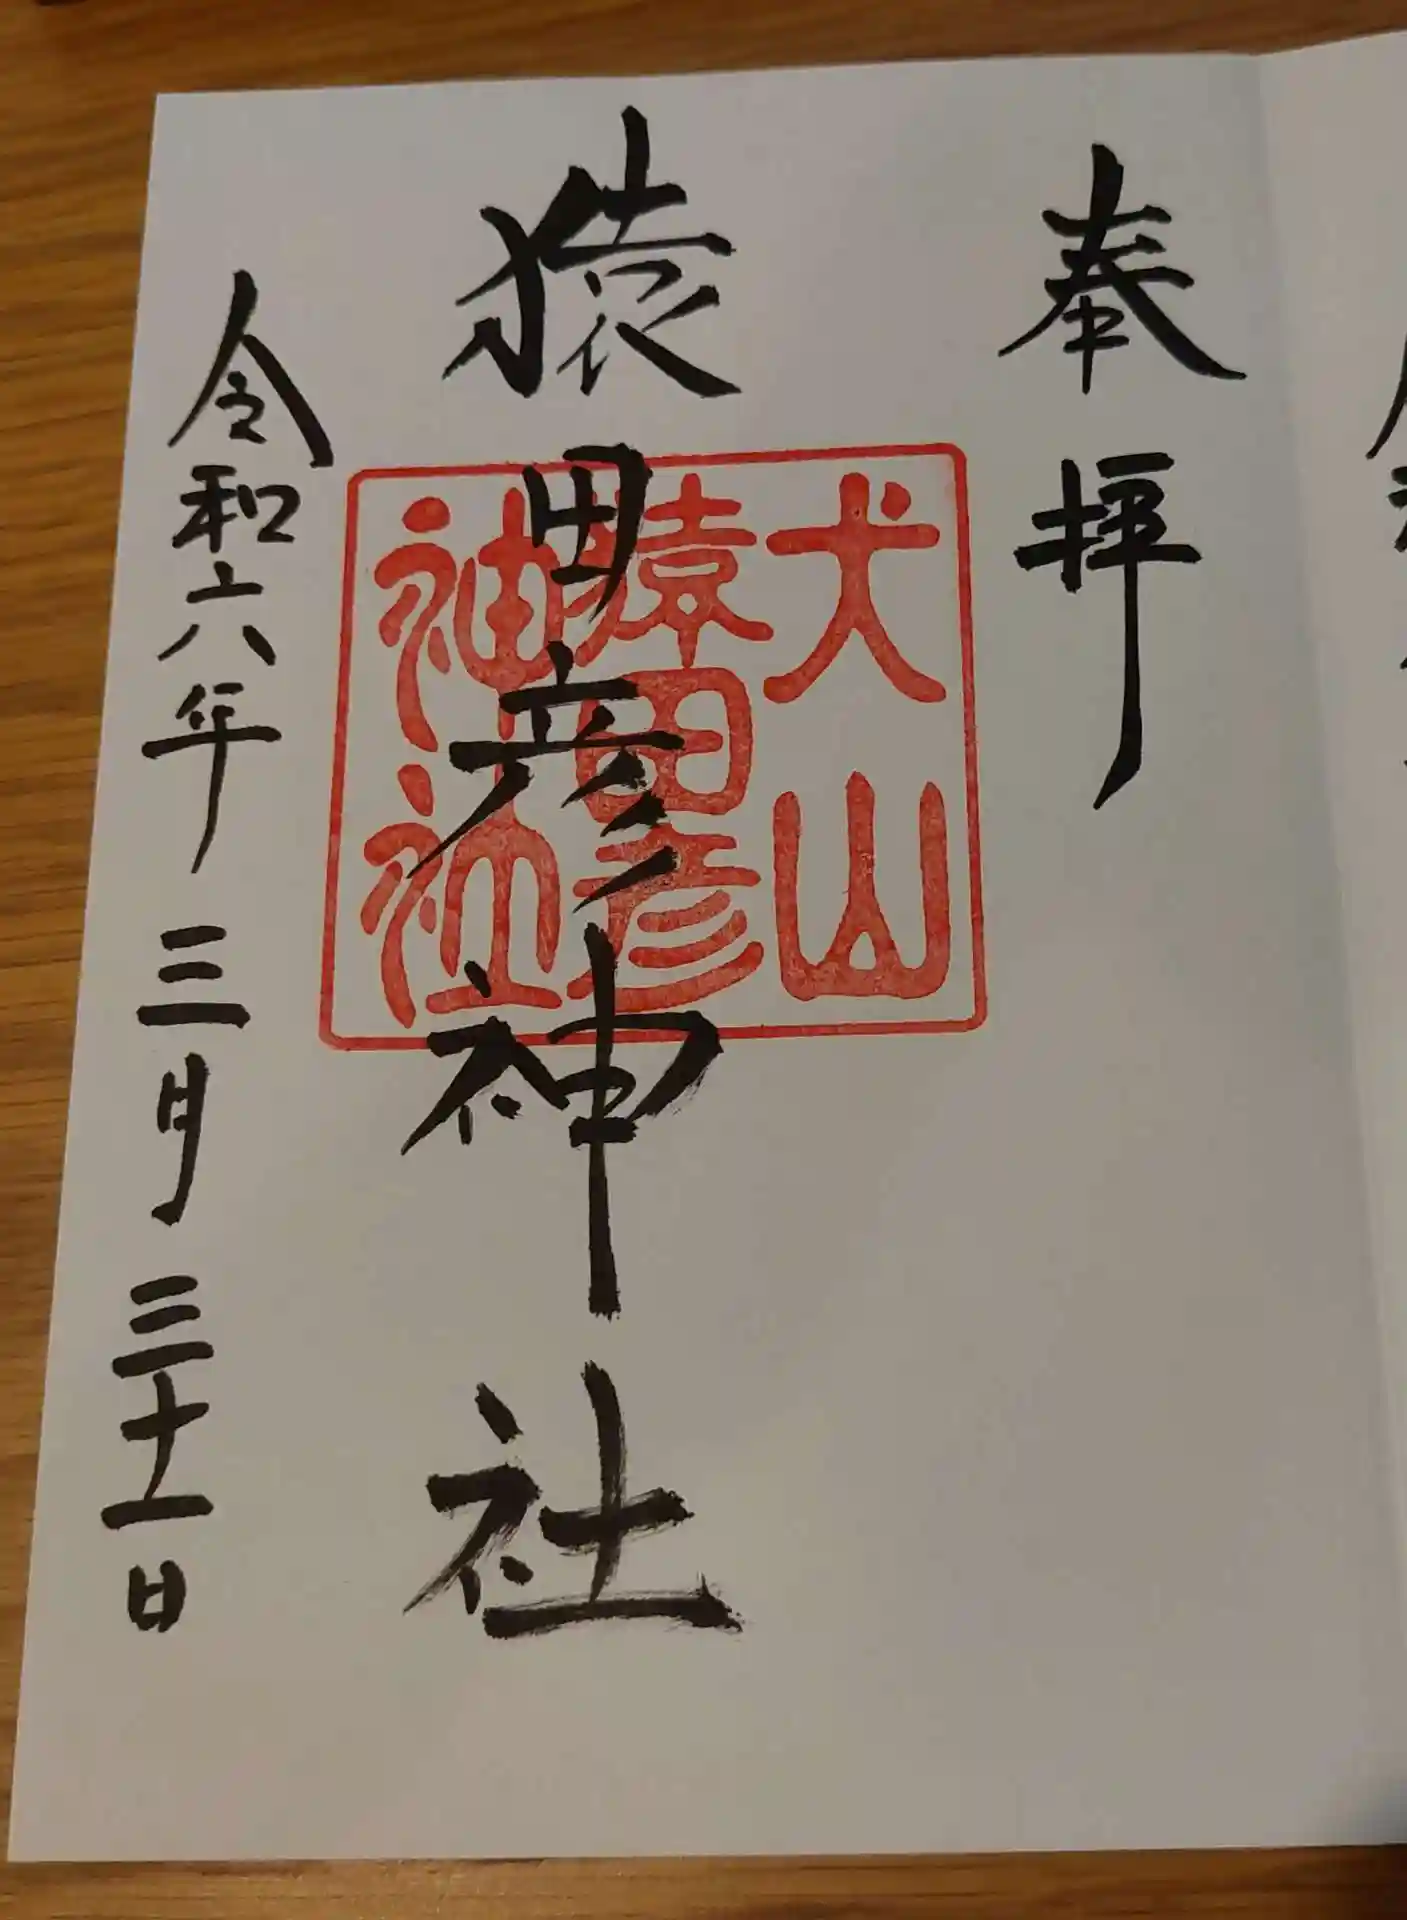 奉拝
猿田彦神社
犬山
猿田彦
神社
令和六年三月三十一日